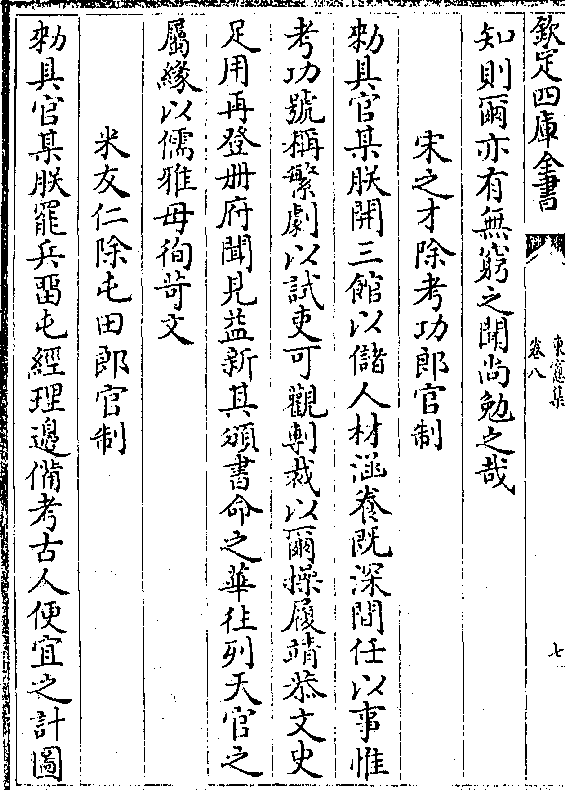 欽定四庫全書
東窗集
卷八
七
知則爾亦有無窮之聞尚勉之哉
宋之才除考功郎官制
勅具官某朕開三館以儲人材涵養既深間任以事惟
考功號稱繁劇以試吏可觀剸裁以爾操履靖恭文史
足用再登册府聞見益新其頒書命之華往列天官之
屬緣以儒雅毋徇苛文
米友仁除屯田郎官制
勅具官某朕罷兵畱屯經理邊備考古人便宜之計圖